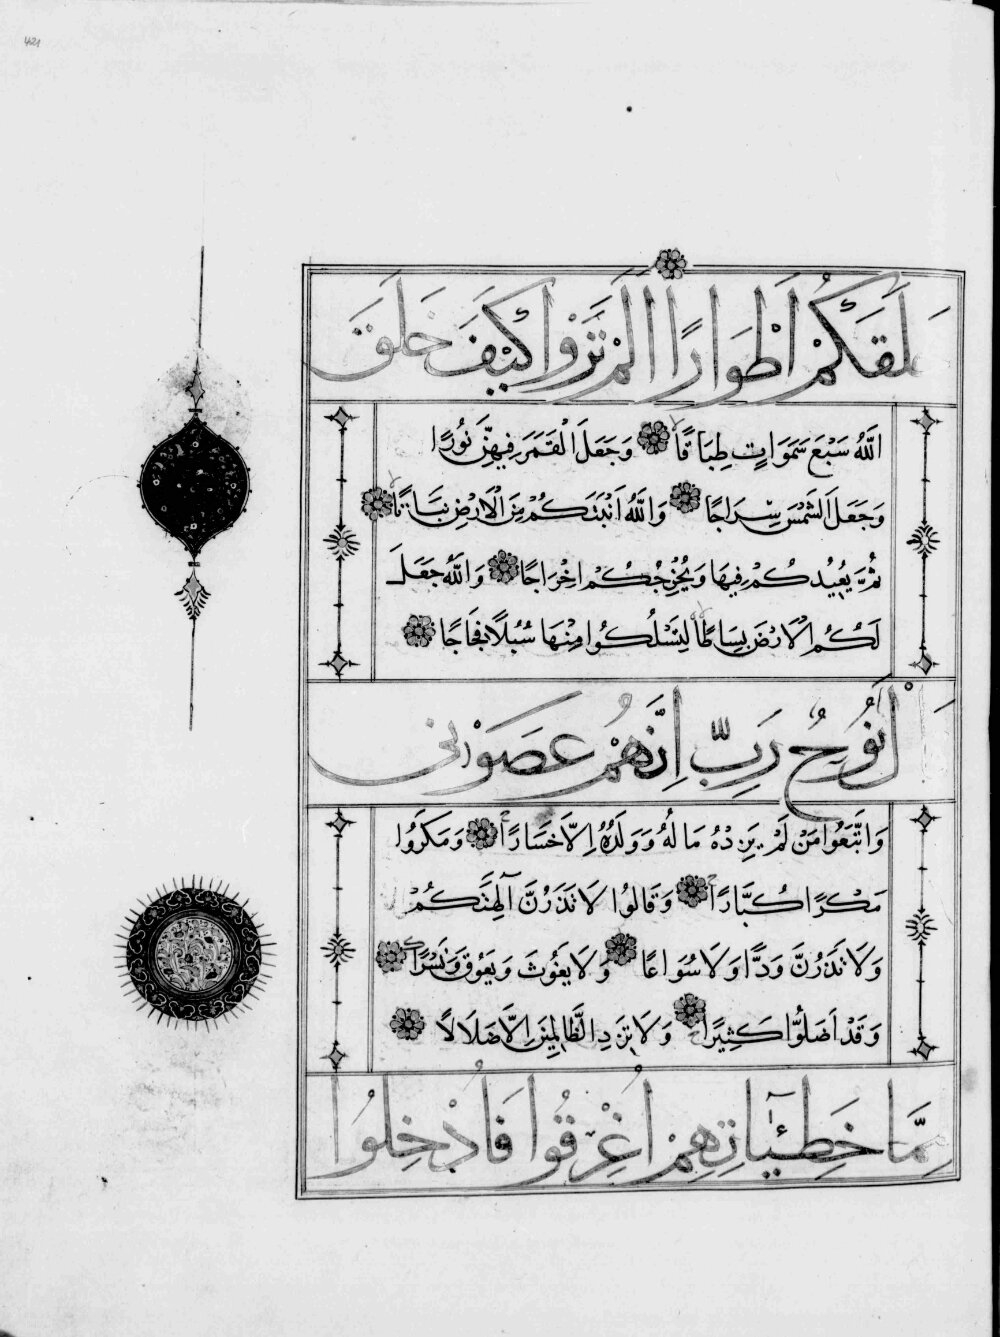 421
خَلَقَكُمْ اَطْوَارًا اَلَمْ تَرَوْا كَيْفَ خَلَقَ
اللّٰهُ سَبْعَ سَمَوَاتٍ طِبَاقًا وَجَعَلَ الْقَمَرَ فِيهِنَّ نُورًا
وَجَعَلَ الشَّمْسَ سِرَاجًا وَاللّٰهُ اَنْبَتَكُمْ مِنَ الْاَرْضِ نَبَاتًا
ثُمَّ يُعِيدُكُمْ فِيهَا وَيُخْرِجُكُمْ اِخْرَاجًا وَاللّٰهُ جَعَلَ
لَكُمُ الْاَرْضَ بِسَاطًا لِتَسْلُكُوا مِنْهَا سُبُلًا فِجَاجًا
قَالَ نُوحٌ رَبِّ اِنَّهُمْ عَصَوْنِى
وَاتَّبَعُوا مَنْ لَمْ يَزِدْهُ مَالُهُ وَوَلَدُهُ اِلَّا خَسَارًا وَمَكَرُوا
مَكْرًا كُبَّارًا وَقَالُوا لَا تَذَرُنَّ آلِهَتَكُمْ
وَلَا تَذَرُنَّ وَدًّا وَلَا سُوَاعًا وَلَا يَغُوثَ وَيَعُوقَ وَنَسْرًا
وَقَدْ اَضَلُّوا كَثِيرًا وَلَا تَزِدِ الظَّالِمِينَ اِلَّا ضَلَالًا
مِمَّا خَطِٓيـَٔاتِهِمْ اُغْرِقُوا فَاُدْخِلُوا